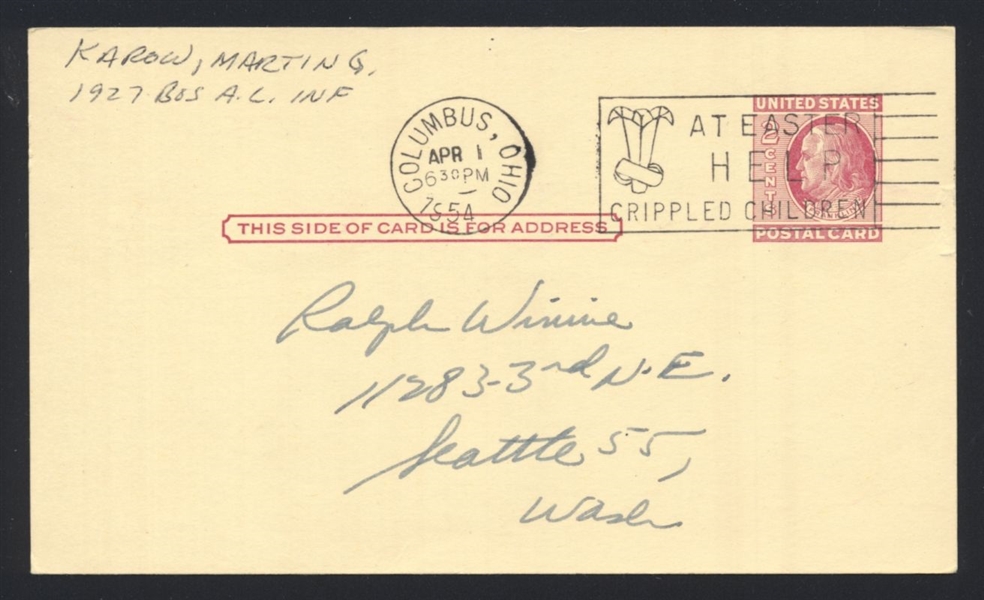 KAROW, MARTIN G.
1927 BOS A.L. INF
COLUMBUS, OHIO
APR 1
6 30 PM
1954
AT EASTER
HELP
CRIPPLED CHILDREN
UNITED STATES
2 CENTS
POSTAL CARD
THIS SIDE OF CARD IS FOR ADDRESS
Ralph Winnie
11283-3rd N.E.
Seattle 55,
Wash